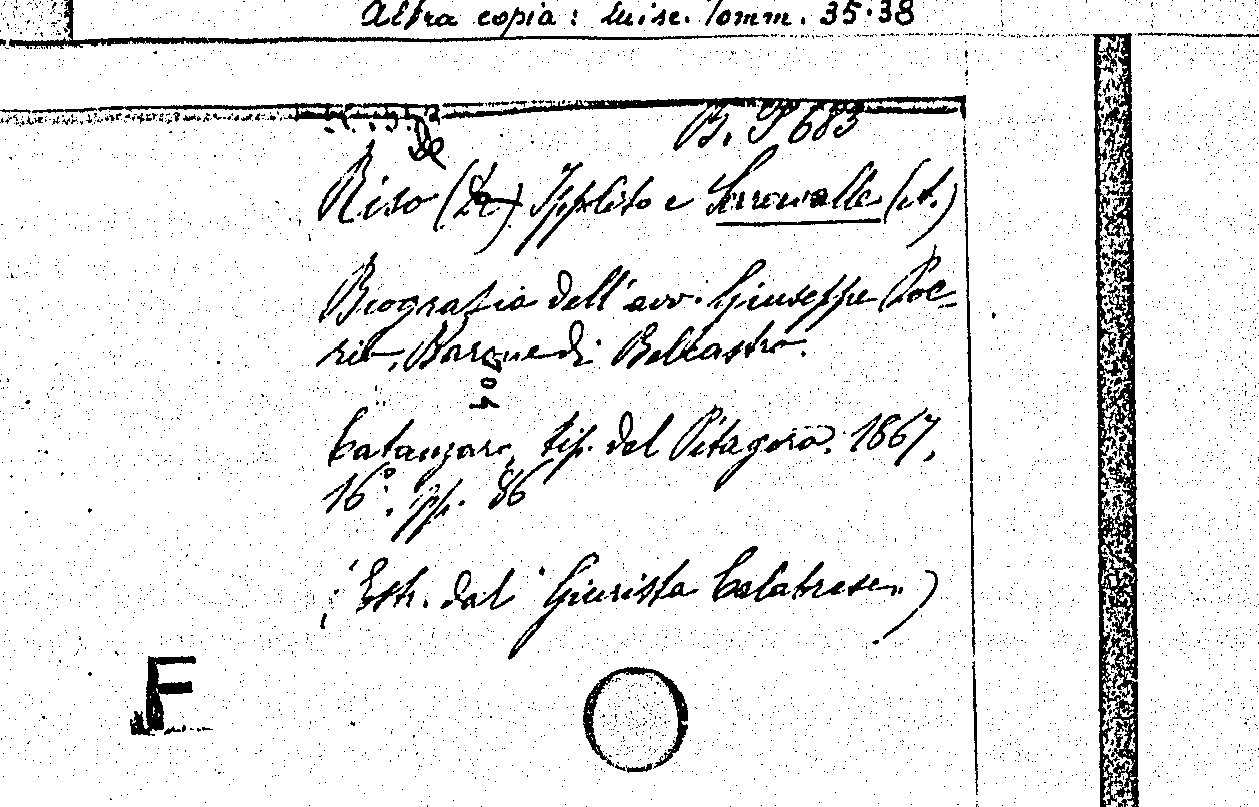 Altra copia: Misc. Tomm. 35.38
B. P 683
De
Riso (De) Ippolito e Serravalle (A.)
Biografia dell'avv. Giuseppe Poe-
rio, Barone di Belcastro.
704
Catanzaro, tip. del Pitagora. 1867,
16°. pp. 86
(Estr. dal Giurista Calabrese.)
F